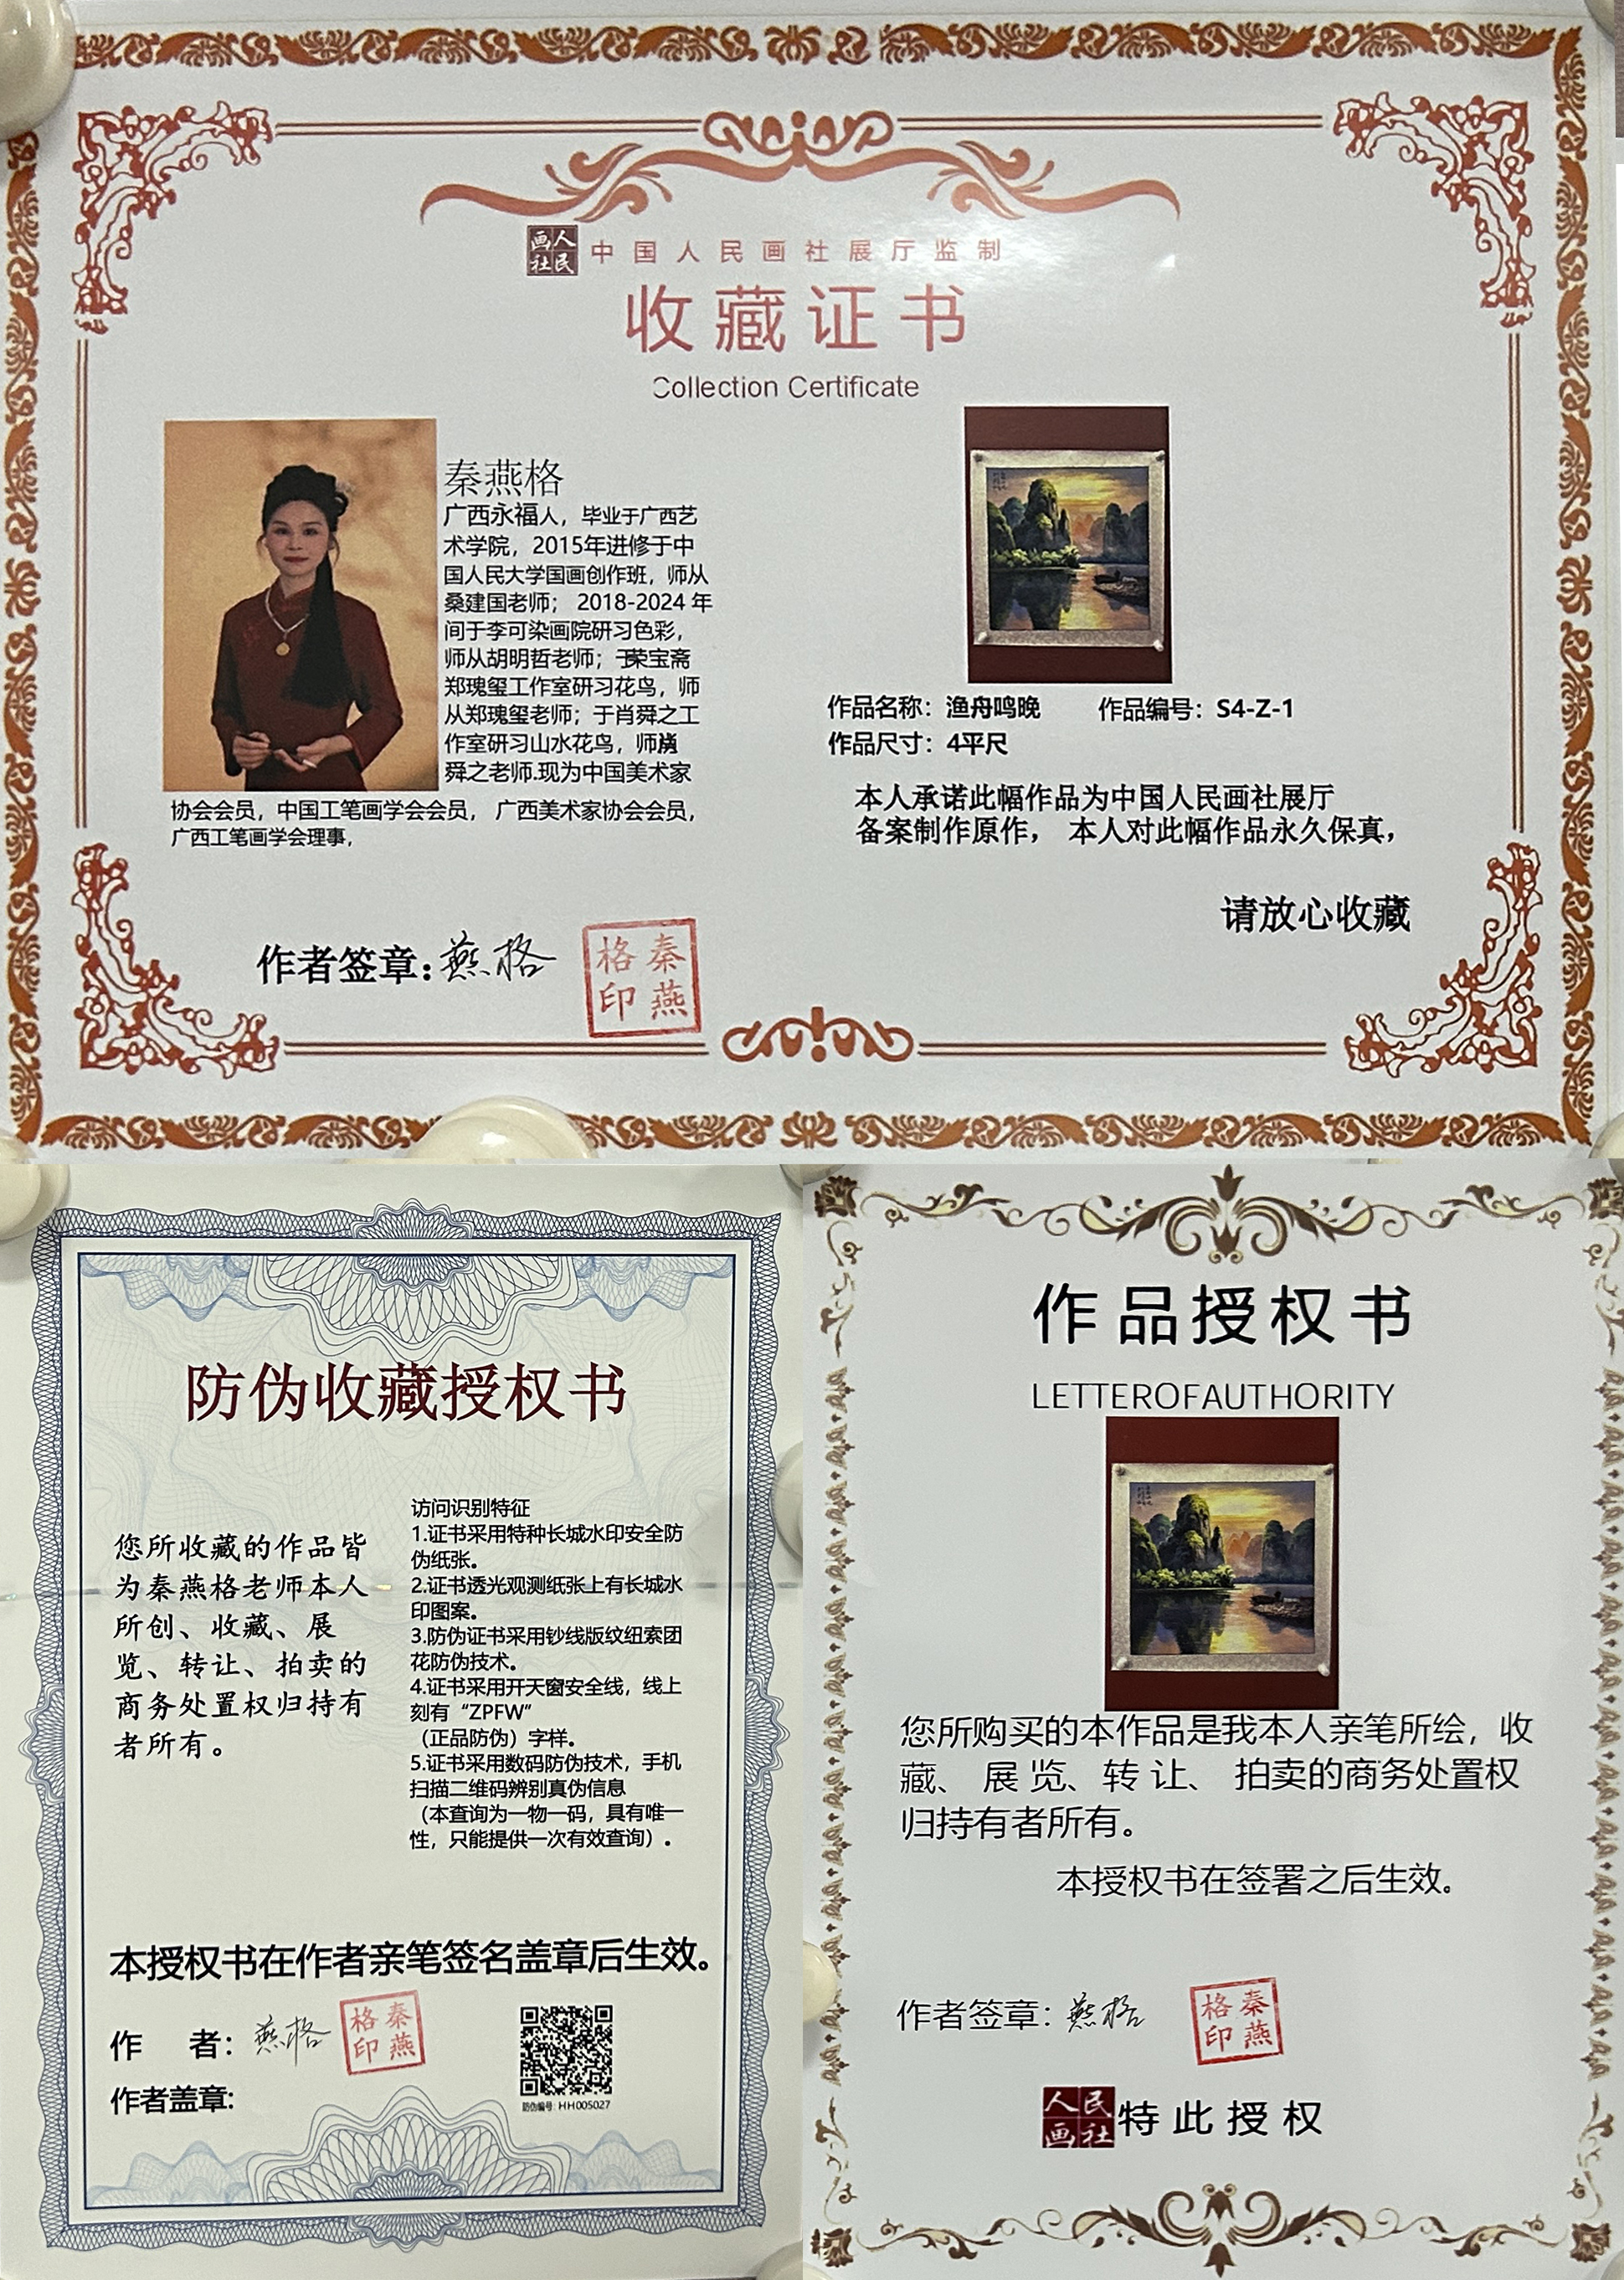 画人
社民
中国人民画社展厅监制
收藏证书
Collection Certificate
秦燕格
广西永福人，毕业于广西艺
术学院，2015年进修于中
国人民大学国画创作班，师从
桑建国老师； 2018-2024 年
间于李可染画院研习色彩，
师从胡明哲老师；于荣宝斋
郑瑰玺工作室研习花鸟，师
从郑瑰玺老师；于肖舜之工
作室研习山水花鸟，师
舜之老师.现为中国美术家
协会会员，中国工笔画学会会员， 广西美术家协会会员，
广西工笔画学会理事，
作者签章：燕格
格秦
印燕
作品名称：渔舟鸣晚 作品编号：S4-Z-1
作品尺寸：4平尺
本人承诺此幅作品为中国人民画社展厅
备案制作原作， 本人对此幅作品永久保真，
请放心收藏
防伪收藏授权书
您所收藏的作品皆
为秦燕格老师本人
所创、收藏、展
览、转让、拍卖的
商务处置权归持有
者所有。
访问识别特征
1.证书采用特种长城水印安全防
伪纸张。
2.证书透光观测纸张上有长城水
印图案。
3.防伪证书采用钞线版纹纽索团
花防伪技术。
4.证书采用开天窗安全线，线上
刻有“ZPFW”
（正品防伪）字样。
5.证书采用数码防伪技术，手机
扫描二维码辨别真伪信息
（本查询为一物一码，具有唯一
性，只能提供一次有效查询）。
本授权书在作者亲笔签名盖章后生效。
作 者：燕格
格秦
印燕
作者盖章:
防伪编号: HH005027
作品授权书
LETTEROFAUTHORITY
您所购买的本作品是我本人亲笔所绘，收
藏、 展 览、转 让、 拍卖的商务处置权
归持有者所有。
本授权书在签署之后生效。
作者签章：燕格
格秦
印燕
人民
画社
特此授权